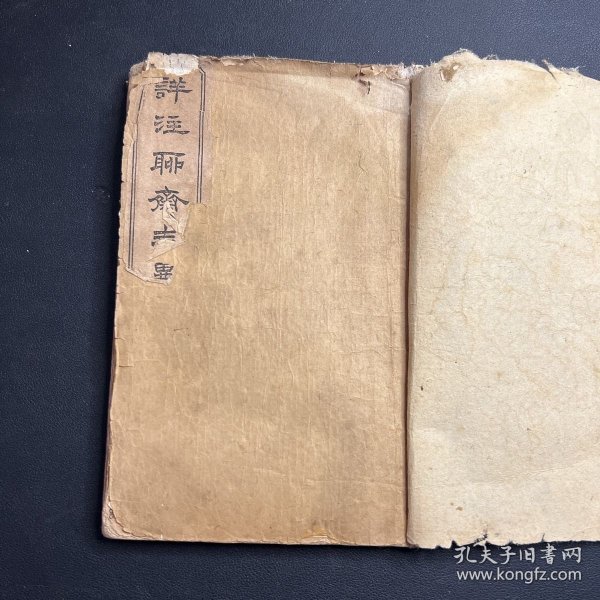 詳注聊齋志異
孔夫子旧书网
www.kongfz.com